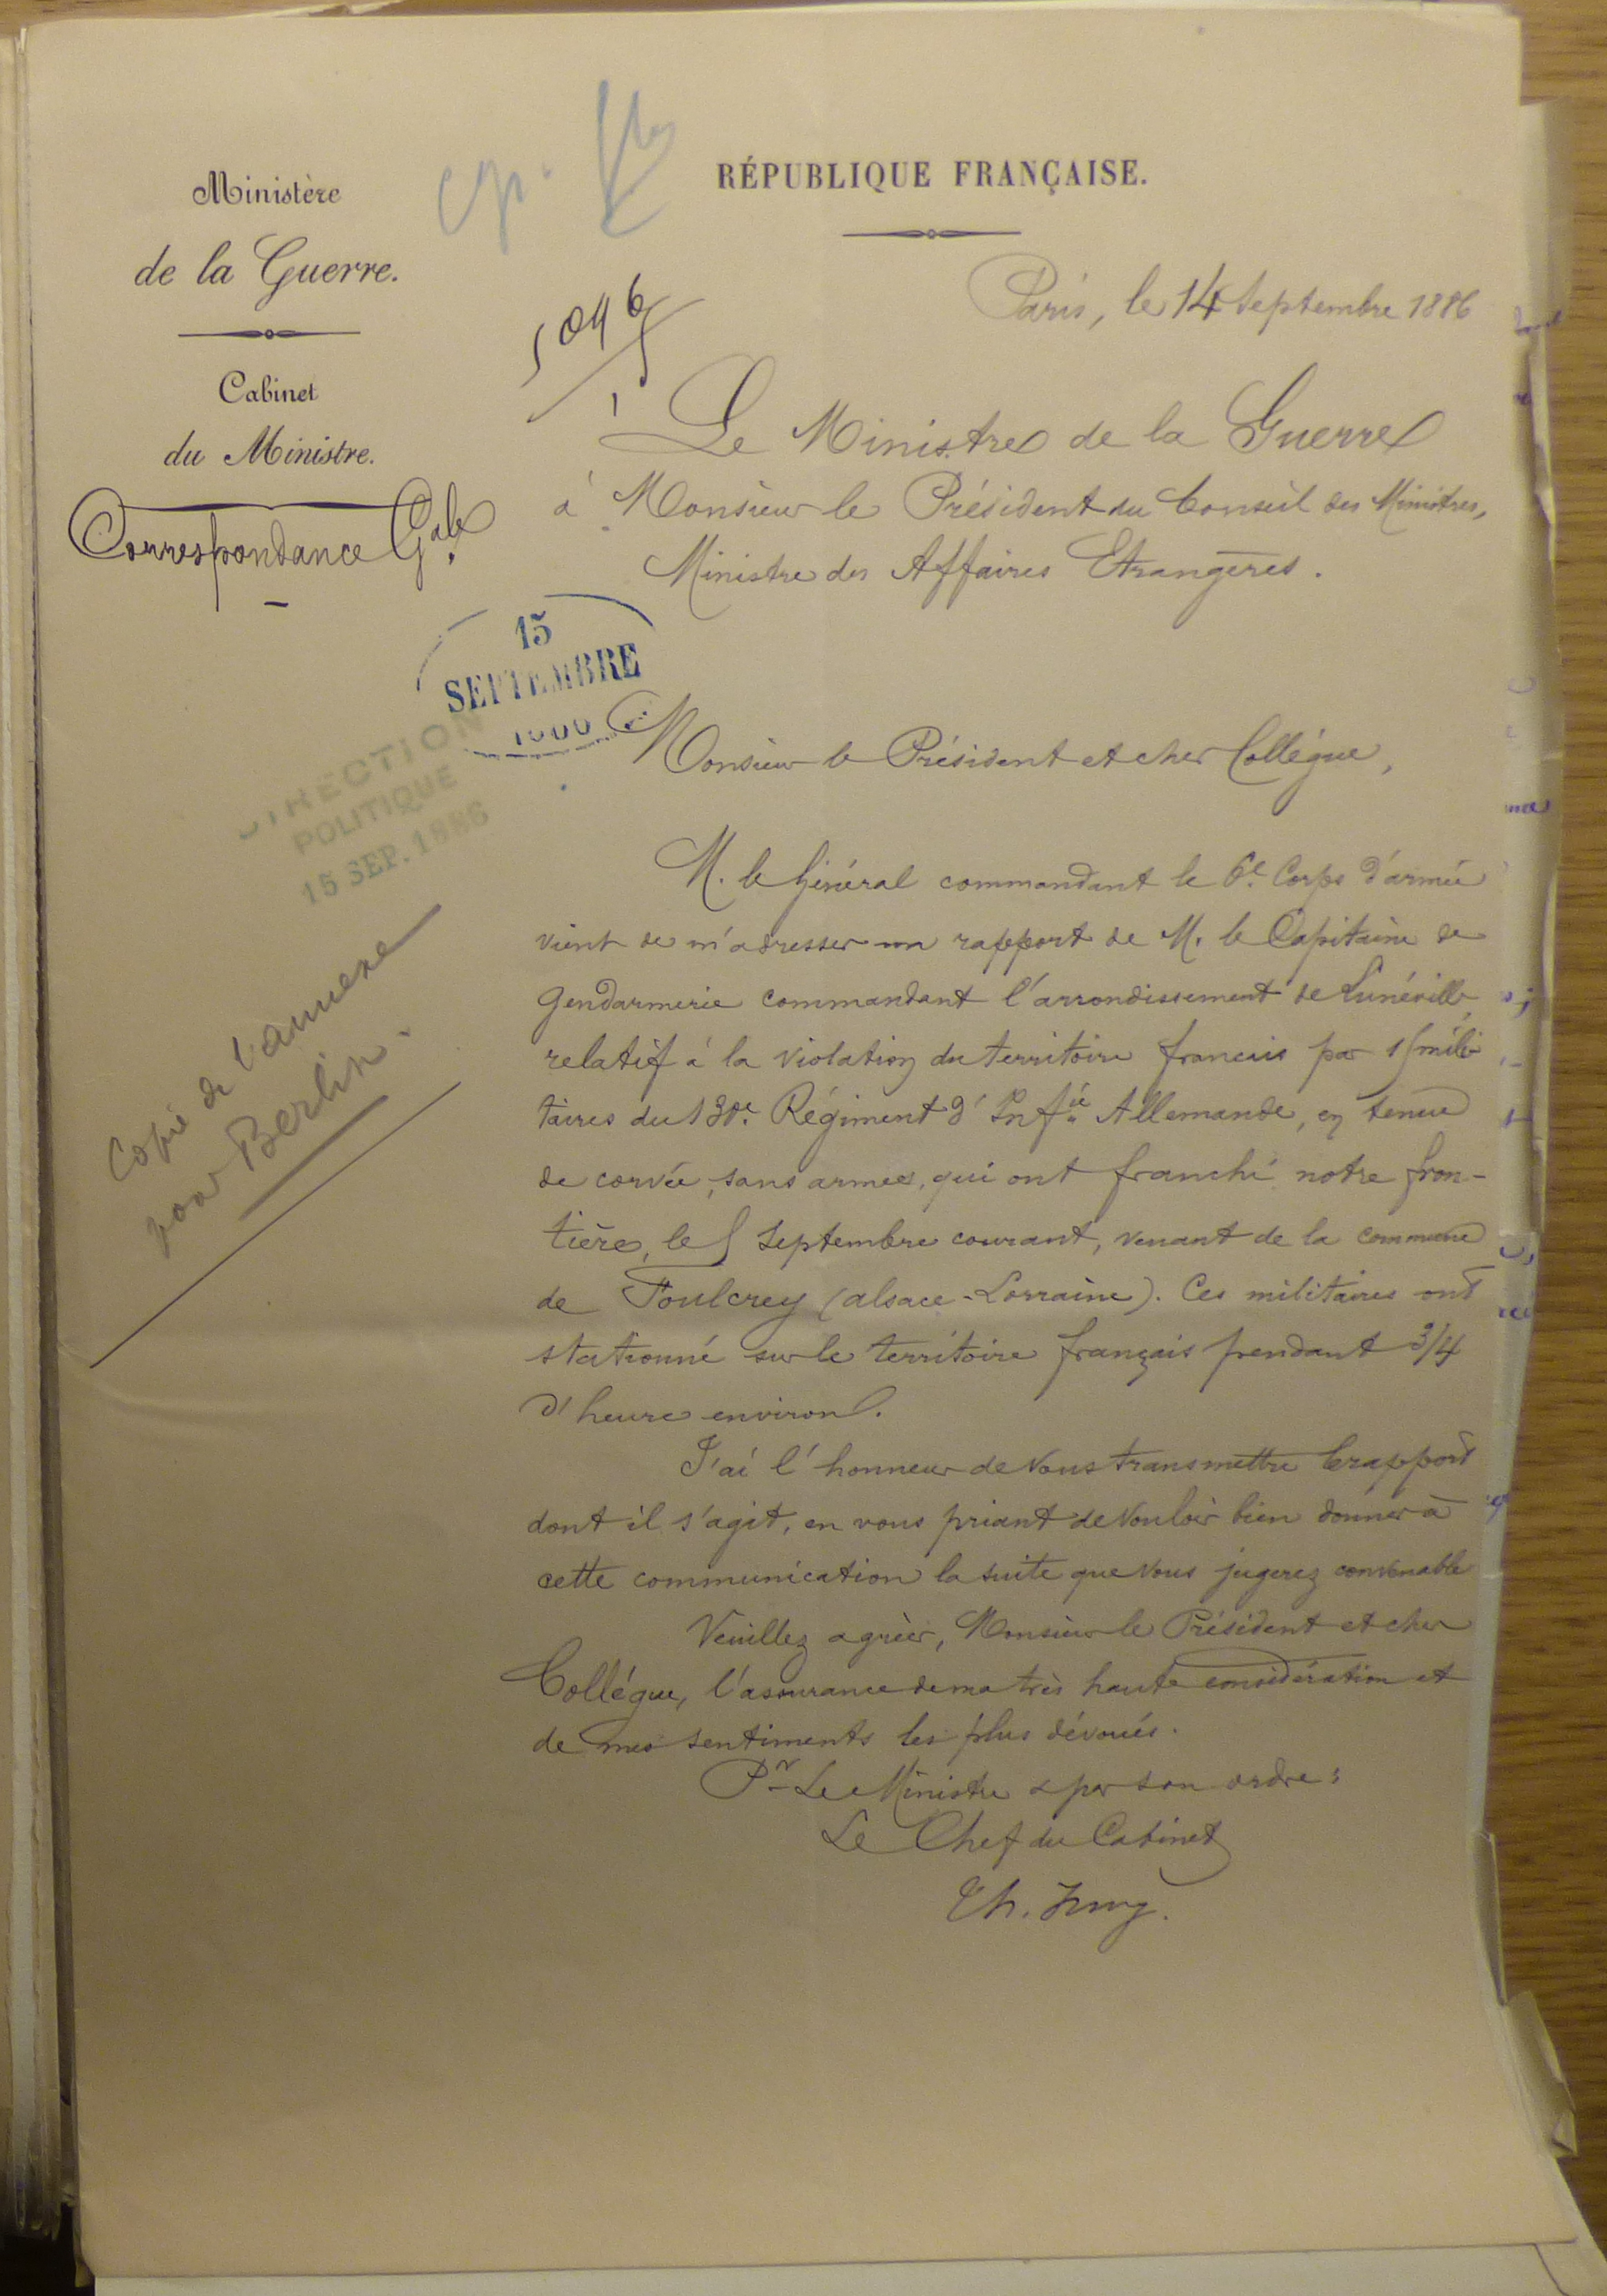 RÉPUBLIQUE FRANÇAISE.
Ministère
de la Guerre.
Cabinet
du Ministre.
Correspondance Gale.
cp.
5096
Paris, le 14 Septembre 1886
Le Ministre de la Guerre
à Monsieur le Président du Conseil des Ministres,
Ministre des Affaires Etrangères.
15
SEPTEMBRE
DIRECTION
POLITIQUE
15 SEP. 1886
Copie de l'annexe
pour Berlin.
Monsieur le Président et cher Collègue,
M. le Général commandant le 6e. Corps d'armée
vient de m'adresser un rapport de M. le Capitaine de
Gendarmerie commandant l'arrondissement de Lunéville,
relatif à la violation du territoire francais par 15 mili-
taires du 130e. Régiment d'Infie Allemande, en tenue
de corvée, sans armes, qui ont franchi notre fron-
tière, le 5 Septembre courant, venant de la commune
de Foulcrey (alsace-Lorraine). Ces militaires ont
stationné sur le territoire français pendant 3/4
d'heure environ.
J'ai l'honneur de vous transmettre le rapport
dont il s'agit, en vous priant de vouloir bien donner à
cette communication la suite que vous jugerez convenable
Veuillez agréer, Monsieur le Président et cher
Collègue, l'assurance de ma très haute considération et
de mes sentiments les plus dévoués.
Pr Le Ministre & par son ordre :
Le Chef du Cabinet
Th. Jung.